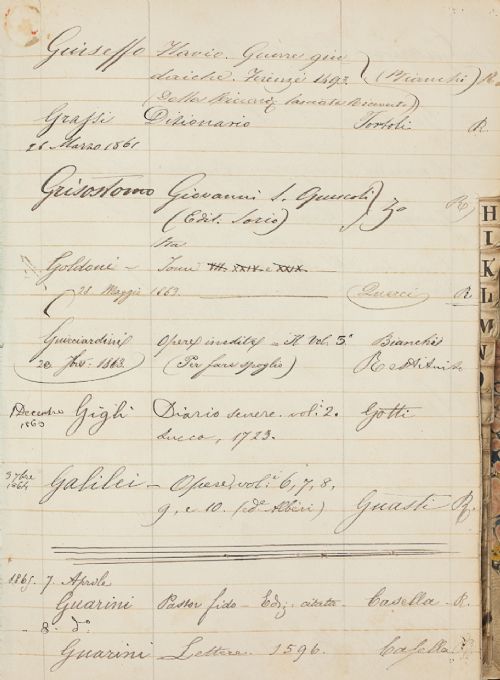 Giuseffo Flavio. Guerre giu
daiche. Firenze 1493. (Bianchi) R.
(Della Riccard. lasciata
Grassi Dizionario Tortoli R.
26 Marzo 1861
Grisostomo Giovanni S. Opuscoli
(Ediz. Sorio) R.
Goldoni – Tomi VII. XXIV. e XXIX.
28 Maggio 1863. R.
Guicciardini Opere inedite – Il Vol. 5º Bianchi
1863. (Per fare spoglio) Restituito
1 Decembre Gigli Diario senese. vol. 2. Gotti
1863 Lucca, 1723.
9bre
1864 Galilei – Opere, vol. 6, 7, 8,
9, e 10. (ed. Albèri) Guasti R.
1865. 7. Aprile
Guarini Pastor fido – Ediz. citata – Casella – R.
– 8. do
Guarini Lettere 1596. Casella R.
H
I
K
L
M
N
O